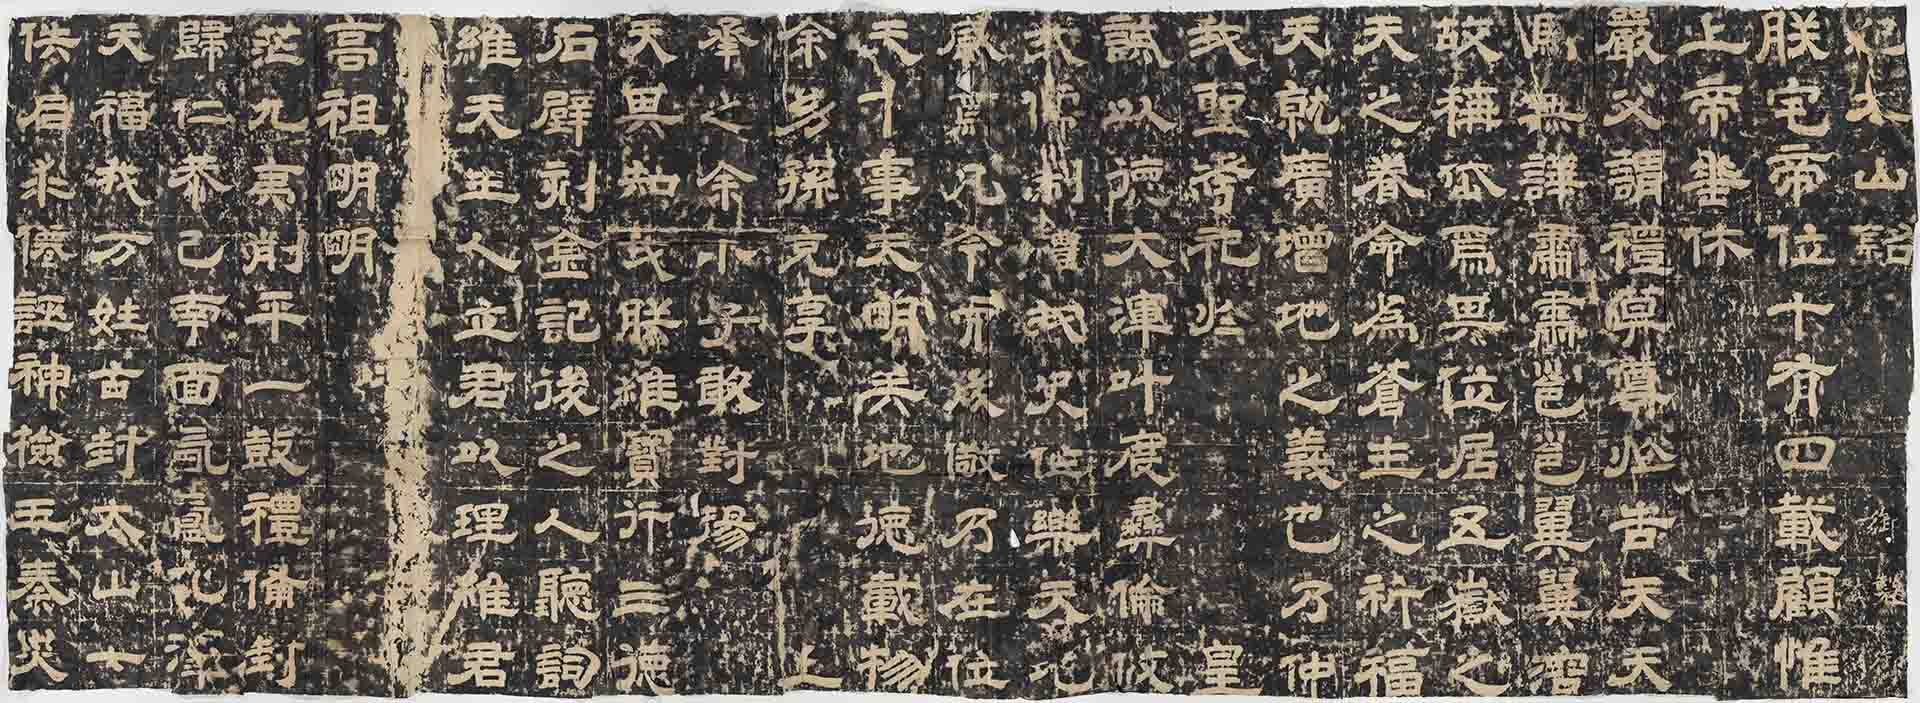 紀太山銘 御製
朕宅帝位十有四載顧惟
上帝垂休
嚴父謂禮莫尊於告天天
則無詳肅肅邕邕翼翼溶
故稱岱為其位居五嶽之
天之眷命為蒼生之祈福
天就廣增地之義也乃仲
我聖考祀於 皇
誠以德大渾叶度彝倫攸
我儒制禮我史作樂天地
凡今而後儆乃在位
天丁事天明夫地德載物
余幼孫克享 上
承之余小子敢對揚
天其知我朕維寶行三德
石壁刻金記後之人聽詞
維天生人立君以理維君
高祖明明
茫九夷削平一鼓禮備封
歸仁恭己南面氤氳化淳
天福我万姓古封太山七
佚后求僊誣神檢玉秦災